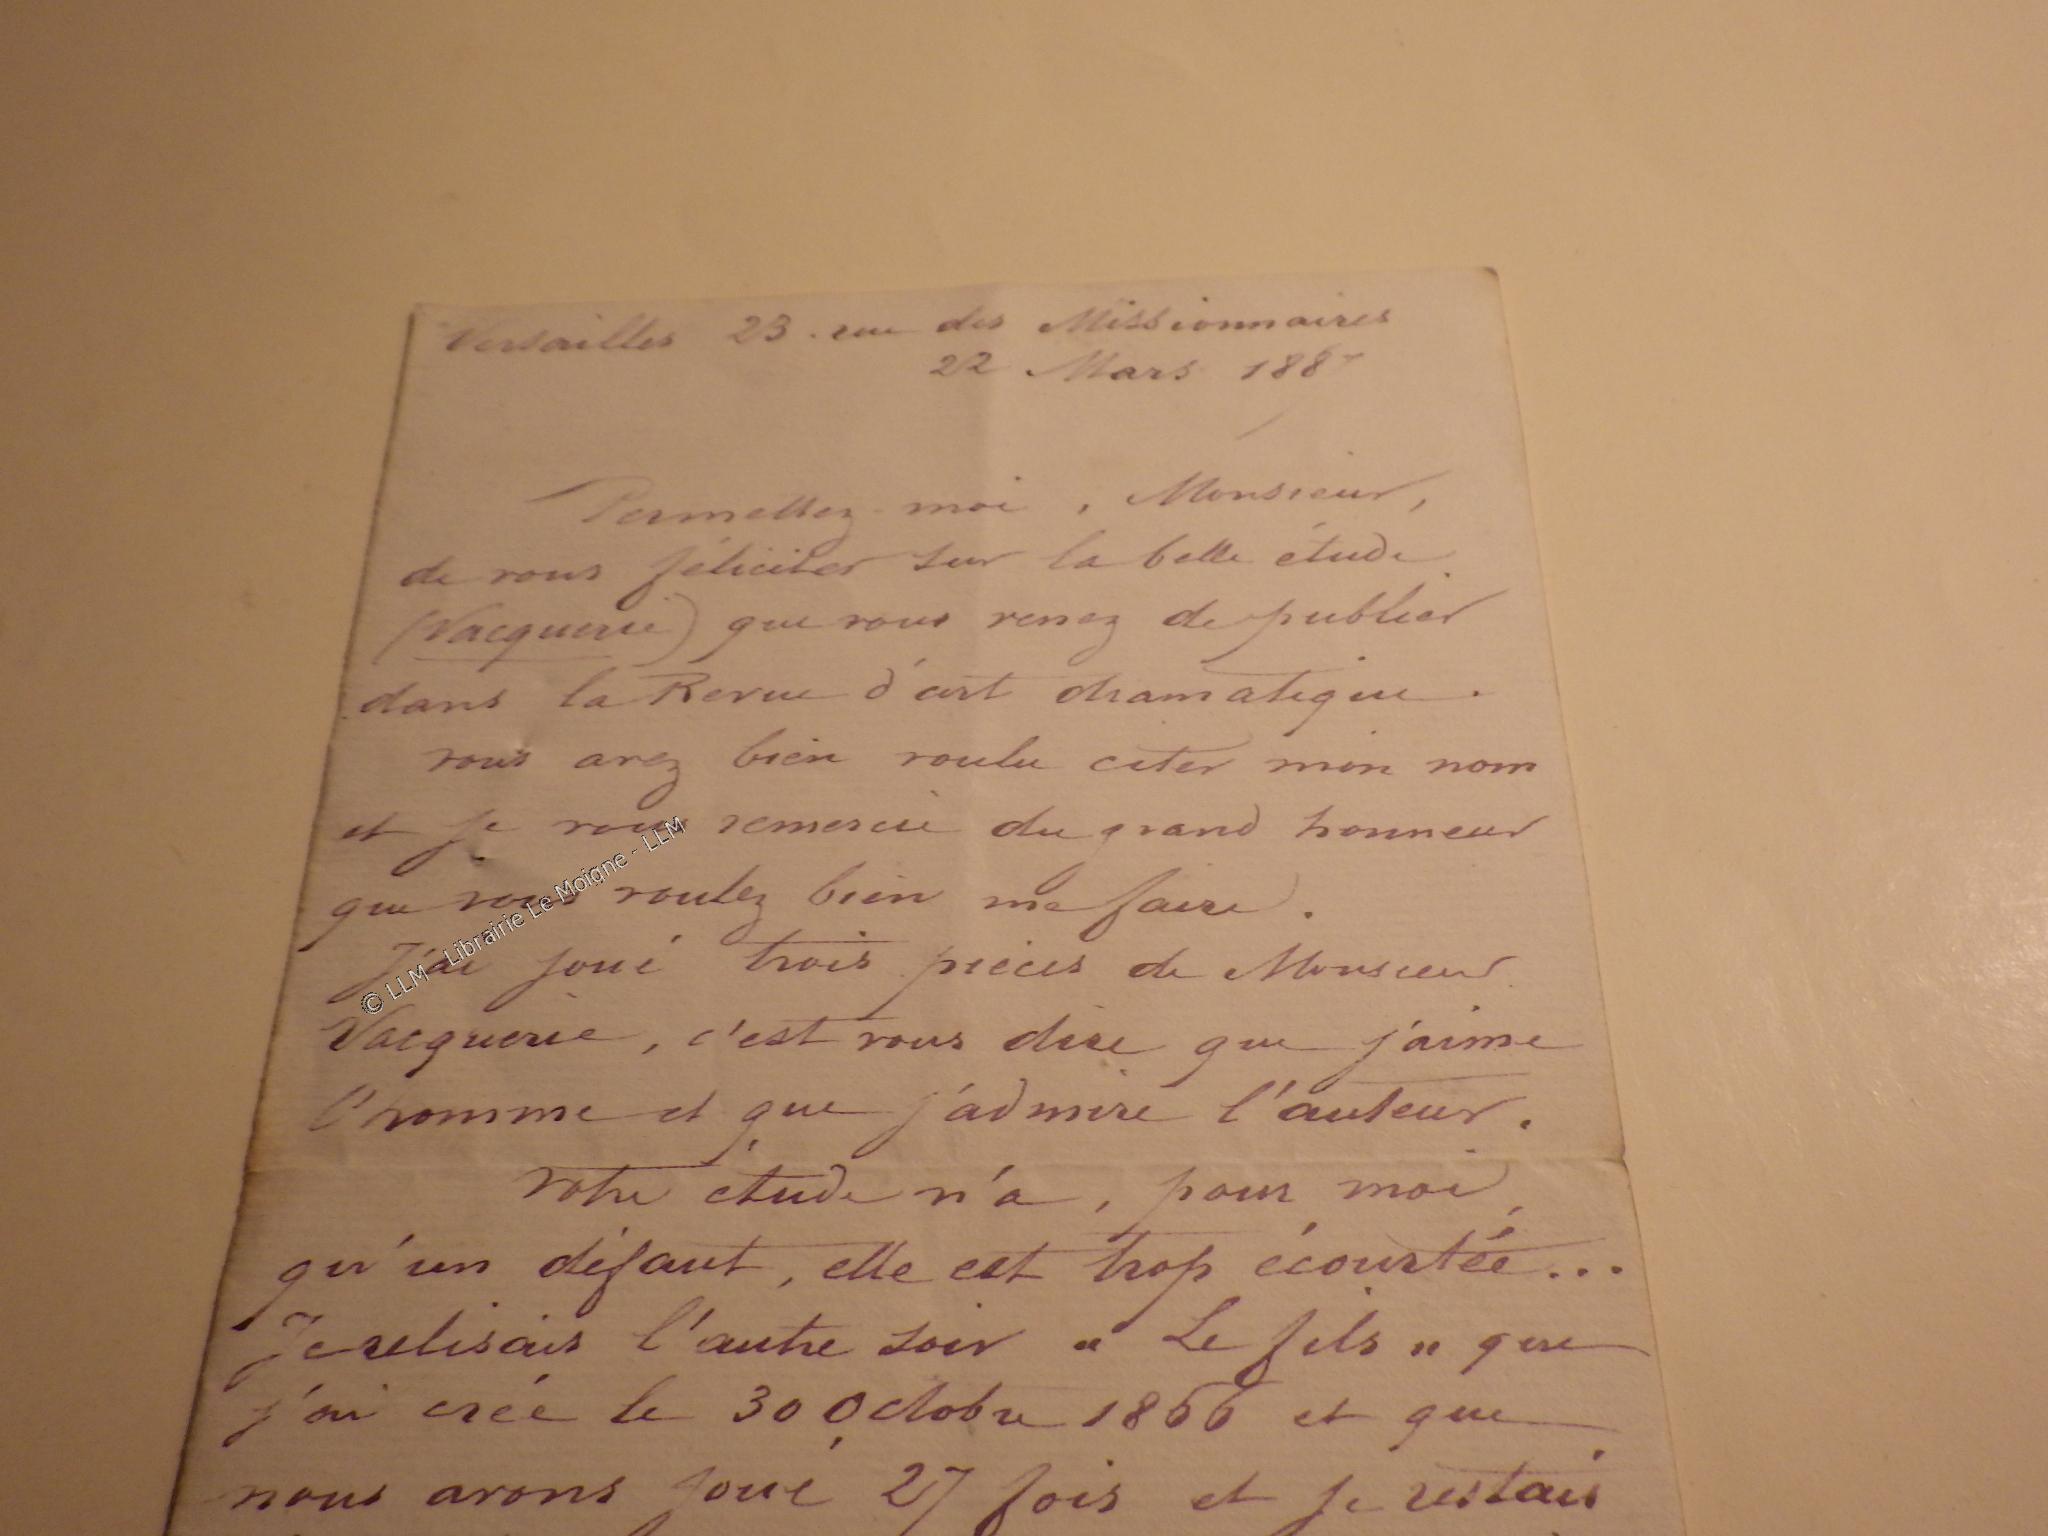 Versailles 23 . rue des Missionnaires
22 Mars 1887
Permettez-moi, Monsieur,
de vous féliciter sur la belle étude
(Vacquerie) que vous venez de publier
dans la Revue d'art dramatique.
vous avez bien voulu citer mon nom
et je vous remercie du grand honneur
que vous voulez bien me faire.
J'ai joué trois pièces de Monsieur
Vacquerie, c'est vous dire que j'aime
l'homme et que j'admire l'auteur.
Votre étude n'a, pour moi,
qu'un défaut, elle est trop écourtée...
Je relisais l'autre soir " Le fils " que
j'ai créé le 30 Octobre 1866 et que
nous avons joué 27 fois et je restais
© LLM - Librairie Le Moigne - LLM